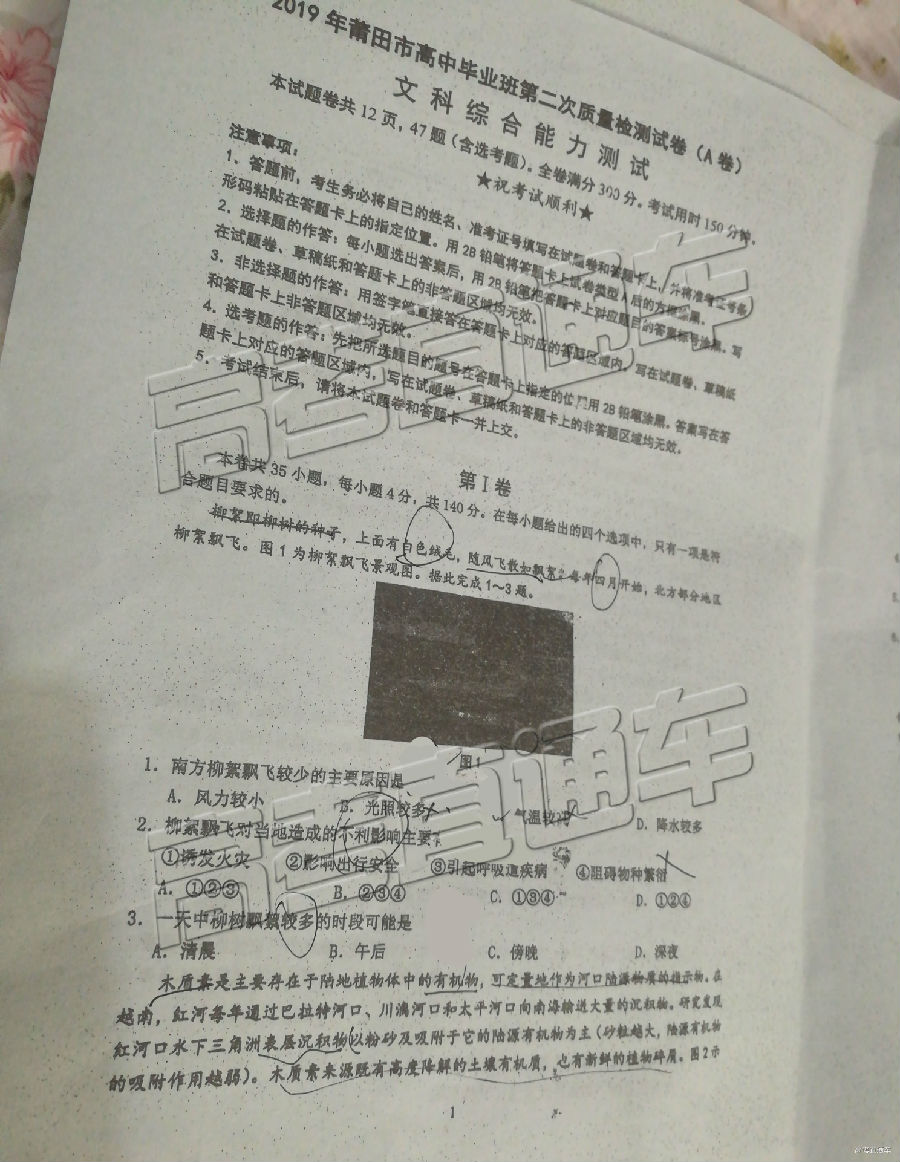 2019年莆田市高中毕业班第二次质量检测试卷（A卷）
文科综合能力测试
本试题卷共12页，47题（含选考题）。全卷满分300分。考试用时150分钟。
★祝考试顺利★
注意事项：
1、答题前，考生务必将自己的姓名、准考证号填写在试题卷和答题卡上，并将准考证号条
形码粘贴在答题卡上的指定位置。用2B铅笔将答题卡上试卷类型A后的方框涂黑。
2、选择题的作答：每小题选出答案后，用2B铅笔把答题卡上对应题目的答案标号涂黑。写
在试题卷、草稿纸和答题卡上的非答题区域均无效。
3、非选择题的作答：用签字笔直接答在答题卡上对应的答题区域内。写在试题卷、草稿纸
和答题卡上非答题区域均无效。
4、选考题的作答：先把所选题目的题号在答题卡上指定的位置用2B铅笔涂黑。答案写在答
题卡上对应的答题区域内，写在试题卷、草稿纸和答题卡上的非答题区域均无效。
5、考试结束后，请将本试题卷和答题卡一并上交。
第Ⅰ卷
本卷共35小题，每小题4分，共140分。在每小题给出的四个选项中，只有一项是符
合题目要求的。
柳絮即柳树的种子，上面有白色绒毛，随风飞散如飘絮。每年四月开始，北方部分地区
柳絮飘飞。图1为柳絮飘飞景观图。据此完成1～3题。
图1
1．南方柳絮飘飞较少的主要原因是
A．风力较小 B．光照较多 气温较 D．降水较多
2．柳絮飘飞对当地造成的不利影响主要
①诱发火灾 ②影响出行安全 ③引起呼吸道疾病 ④阻碍物种繁衍
A．①②③ B．②③④ C．①③④ D．①②④
3．一天中柳树飘絮较多的时段可能是
A．清晨 B．午后 C．傍晚 D．深夜
木质素是主要存在于陆地植物体中的有机物，可定量地作为河口陆源物质的指示物。在
越南，红河每年通过巴拉特河口、川漓河口和太平河口向南海输送大量的沉积物。研究发现
红河口水下三角洲表层沉积物以粉砂及吸附于它的陆源有机物为主（砂粒越大，陆源有机物
的吸附作用越弱）。木质素来源既有高度降解的土壤有机质，也有新鲜的植物碎屑。图2示
1
高考直通车
高考直通车